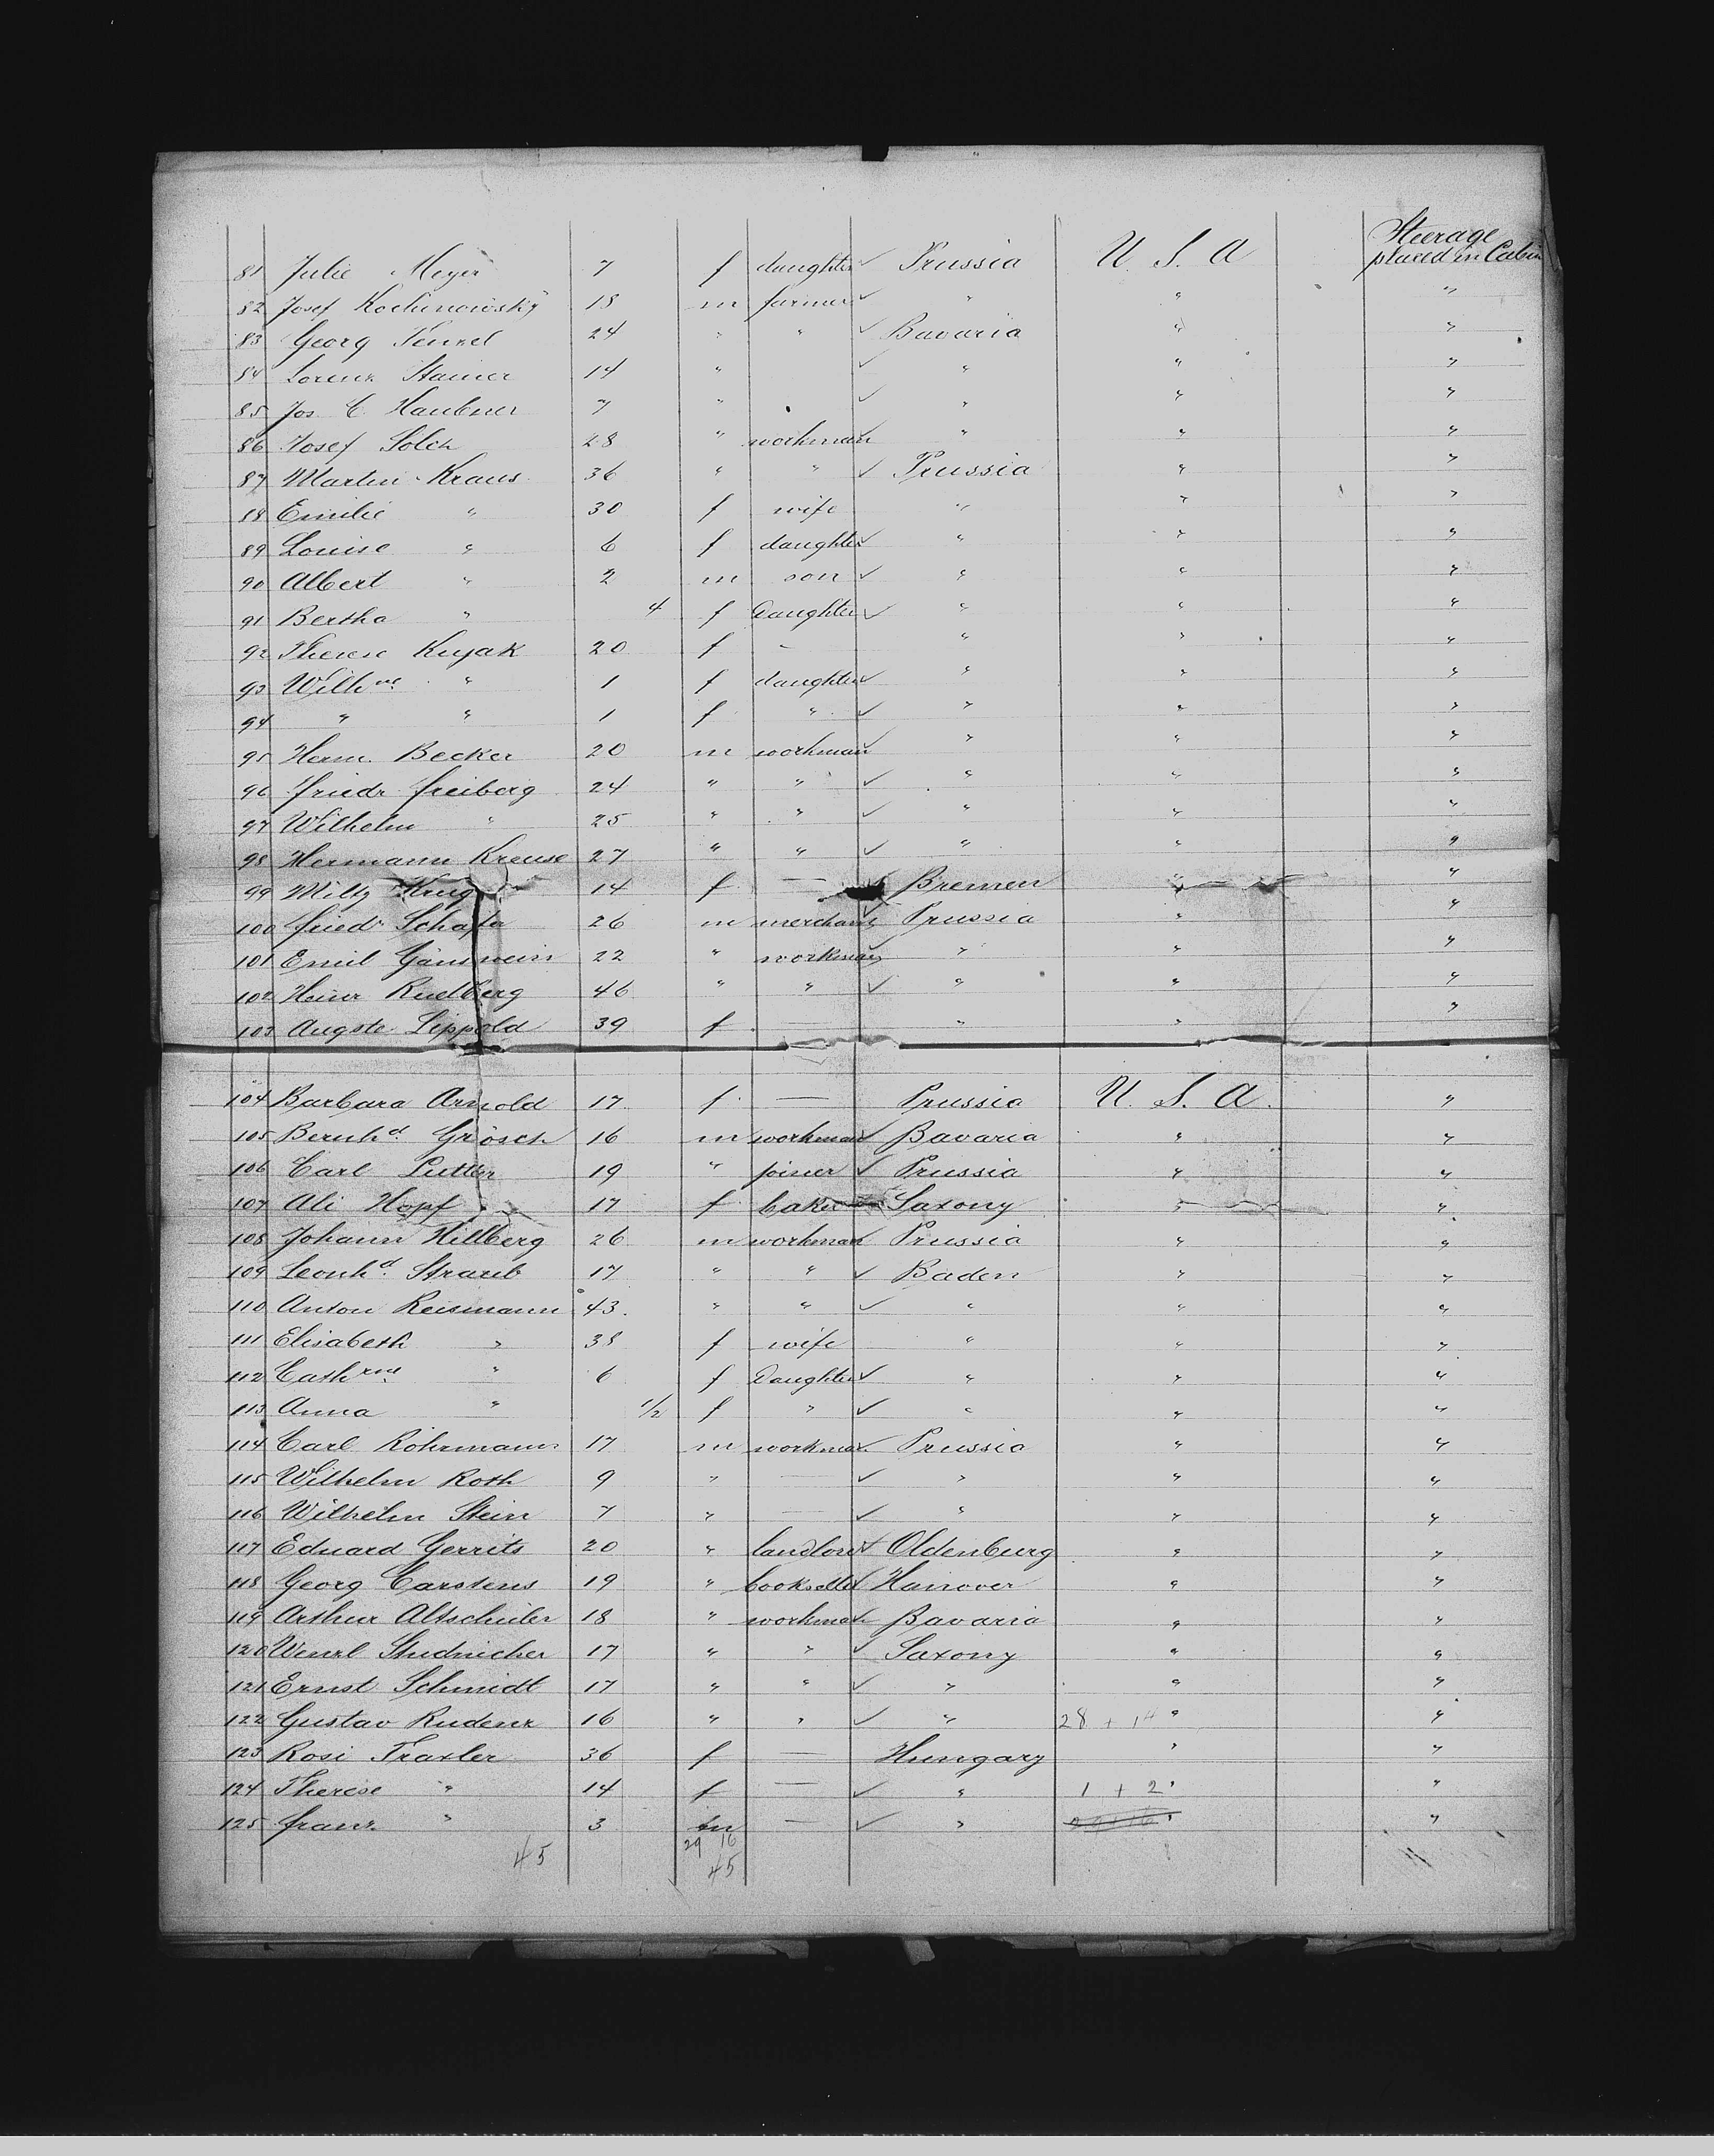 Steerage
81 Julie Meyer 7 f daughter ✓ Prussia U. S. A placed in Cabin
82 Josef Kochinowsky 18 m farmer ✓ " " "
83 Georg 24 " " ✓ Bavaria " "
84 Lorenz Stainer 14 " ✓ " " "
85 Jos C Haubner 7 " ✓ " " "
86 Josef Sölch 28 " workman " " "
87 Martin Kraus 36 " " ✓ Prussia " "
88 Emilie " 30 f wife " " "
89 Louise " 6 f daughter ✓ " " "
90 Albert " 2 m son ✓ " " "
91 Bertha " 4 f Daughter ✓ " " "
92 Therese Kujak 20 f - " " "
93 Wilhne " 1 f daughter ✓ " " "
94 " " 1 f " ✓ " " "
95 Herm. Becker 20 m workman ✓ " " "
96 Friedr Freiberg 24 " " ✓ " " "
97 Wilhelm " 25 " " ✓ " " "
98 Hermann Krause 27 " " ✓ " " "
99 Krug 14 f — ✓ Bremen " "
100 Friedr Schafer 26 m merchant ✓ Prussia " "
101 Emil Gänswein 22 " workman ✓ " " "
102 Heinr Rudberg 46 " " ✓ " " "
103 Augste Lippold 39 f — " " "
104 Barbara Arnold 17 f — Prussia U. S. A. "
105 Bernhd Grösch 16 m workman ✓ Bavaria " "
106 Carl Lutter 19 " joiner ✓ Prussia " "
107 Ali Hopf 17 f baker Saxony " "
108 Johann Hillberg 26 m workman ✓ Prussia " "
109 Leonhd Straub 17 " " ✓ Baden " "
110 Anton Reismann 43. " " ✓ " " "
111 Elisabeth " 38 f wife " " "
112 Cathrne " 6 f Daughter ✓ " " "
113 Anna " 1/2 f " ✓ " " "
114 Carl Röhrmann 17 m workman ✓ Prussia " "
115 Wilhelm Roth 9 " — ✓ " " "
116 Wilhelm Stein 7 " — ✓ " " "
117 Eduard Gerrits 20 " landlord ✓ Oldenburg " "
118 Georg Carstens 19 " bookseller ✓ Hanover " "
119 Arthur Altschuler 18 " workman ✓ Bavaria " "
120 Wenzl Studnicher 17 " " ✓ Saxony " "
121 Ernst Schmidt 17 " " ✓ " " "
122 Gustav Rudenz 16 " " ✓ " 28 + 14 " "
123 Rosi Traxler 36 f — Hungary " "
124 Therese " 14 f — ✓ " 1 + 2 " "
125 Franz " 3 m — ✓ " " "
29 16
45 45